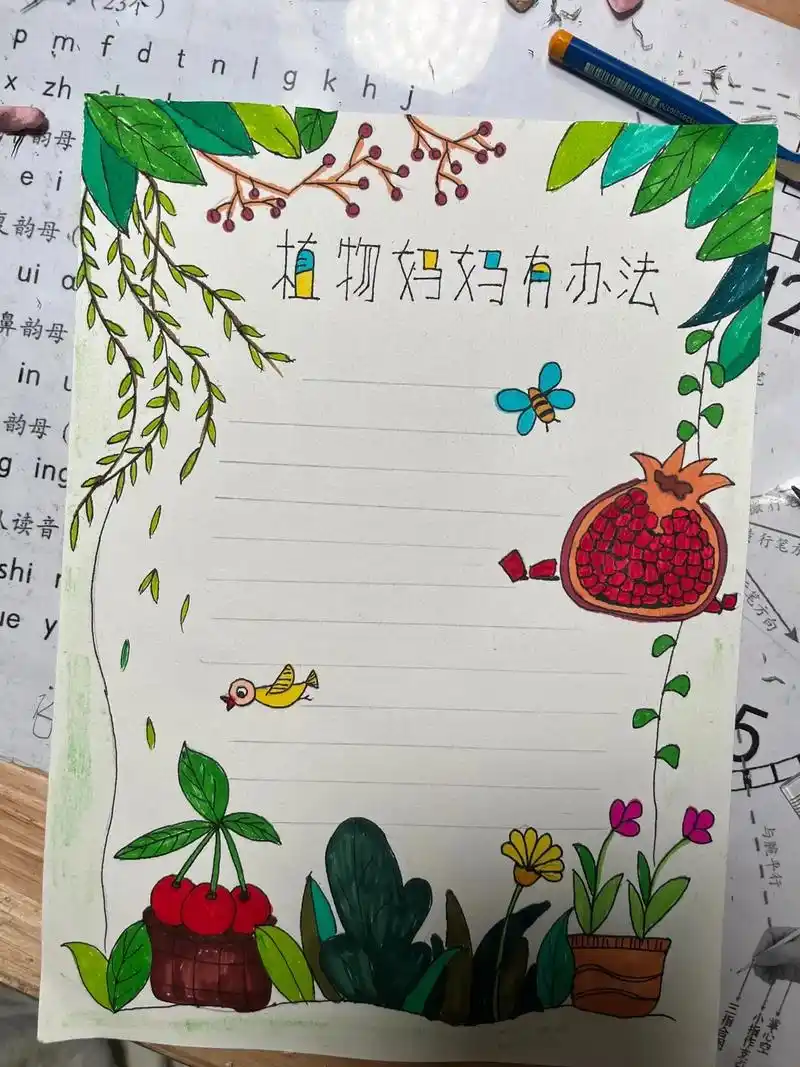 (23个)
p m f d t n l g k h j
x zh
韵母
e i
复韵母
ui
鼻韵母
in
韵母 (
g ing
认读音
shi
ue y
植物妈妈有办法
12
5
与腕平行
掌心空